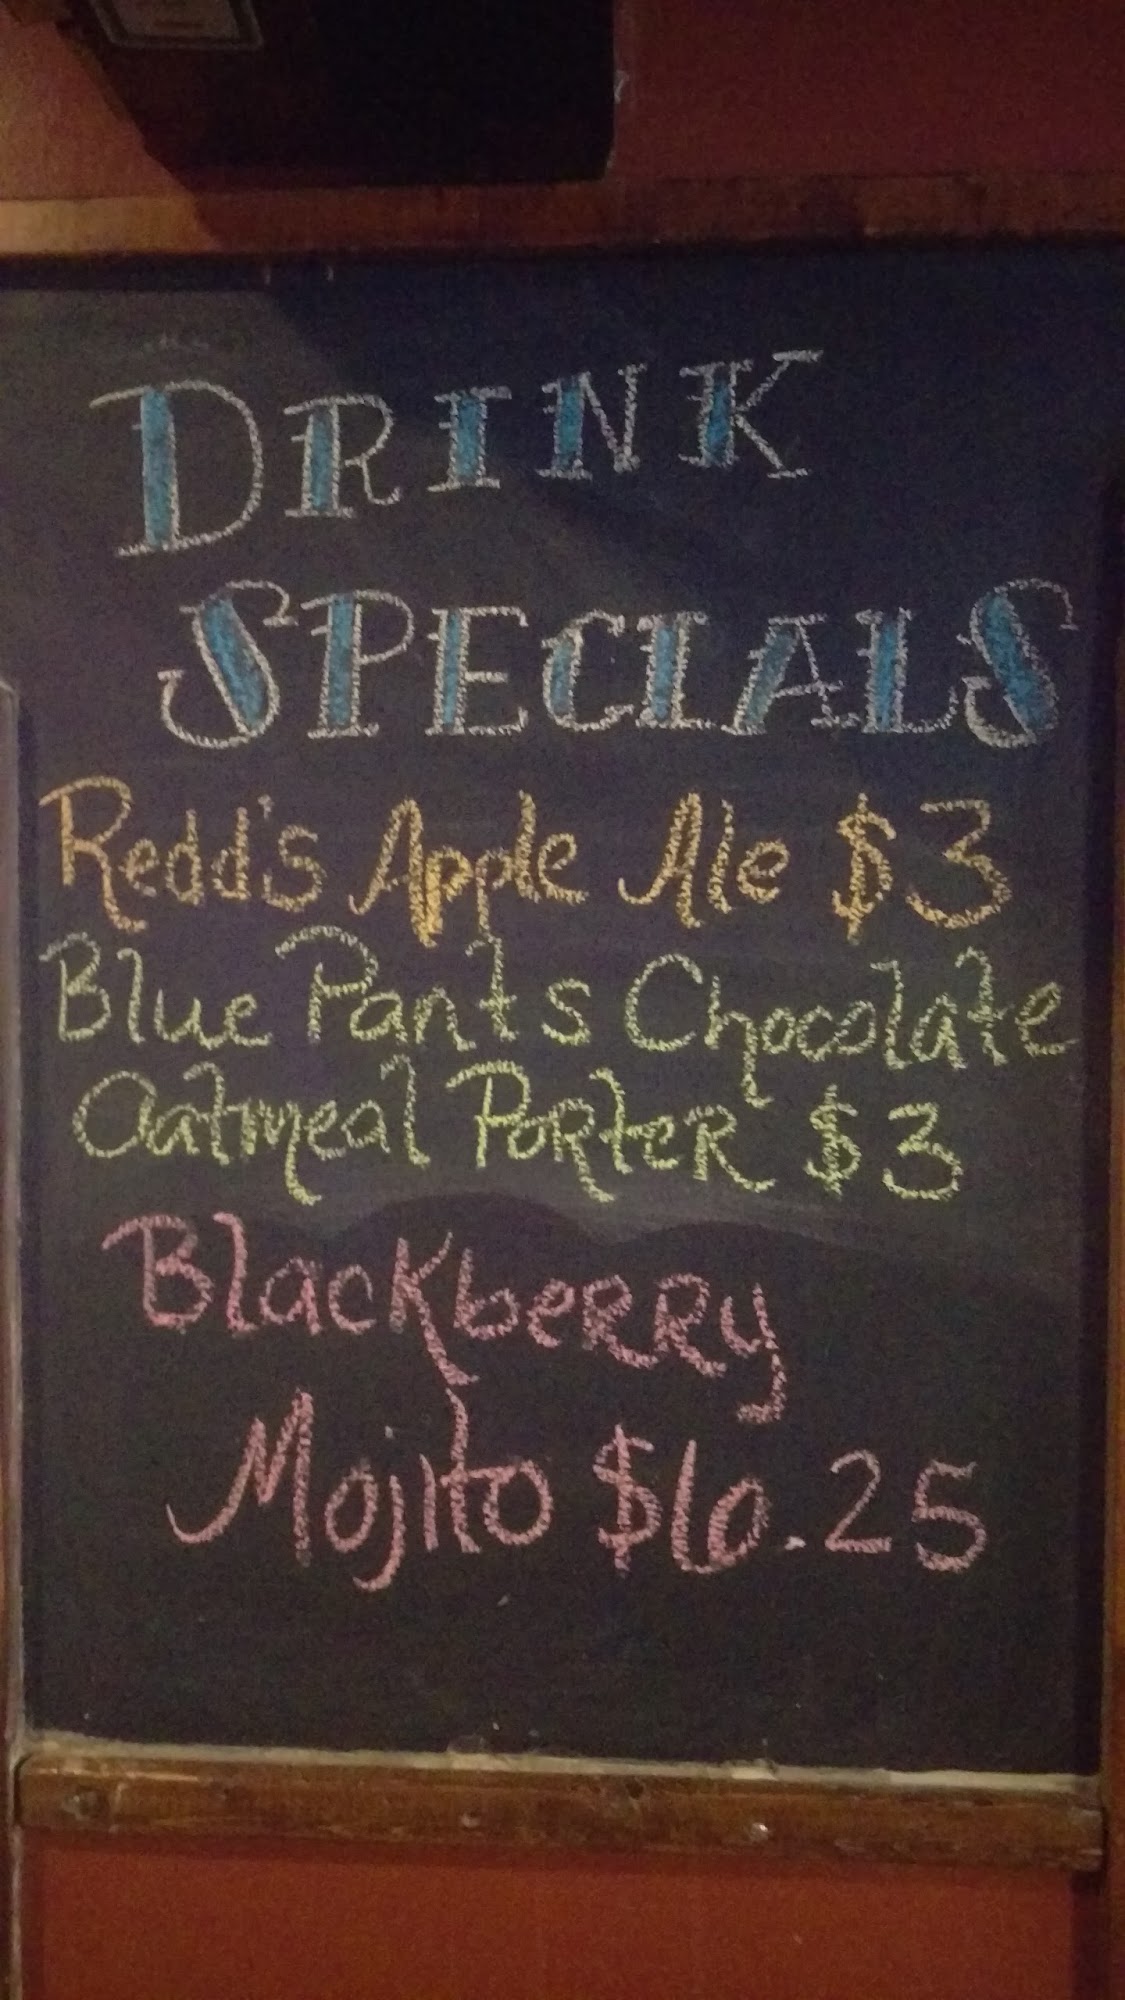 DRINK
SPECIALS
Redd's Apple Ale $3
Blue Pants Chocolate
Oatmeal Porter $3
Blackberry
Mojito $6.25